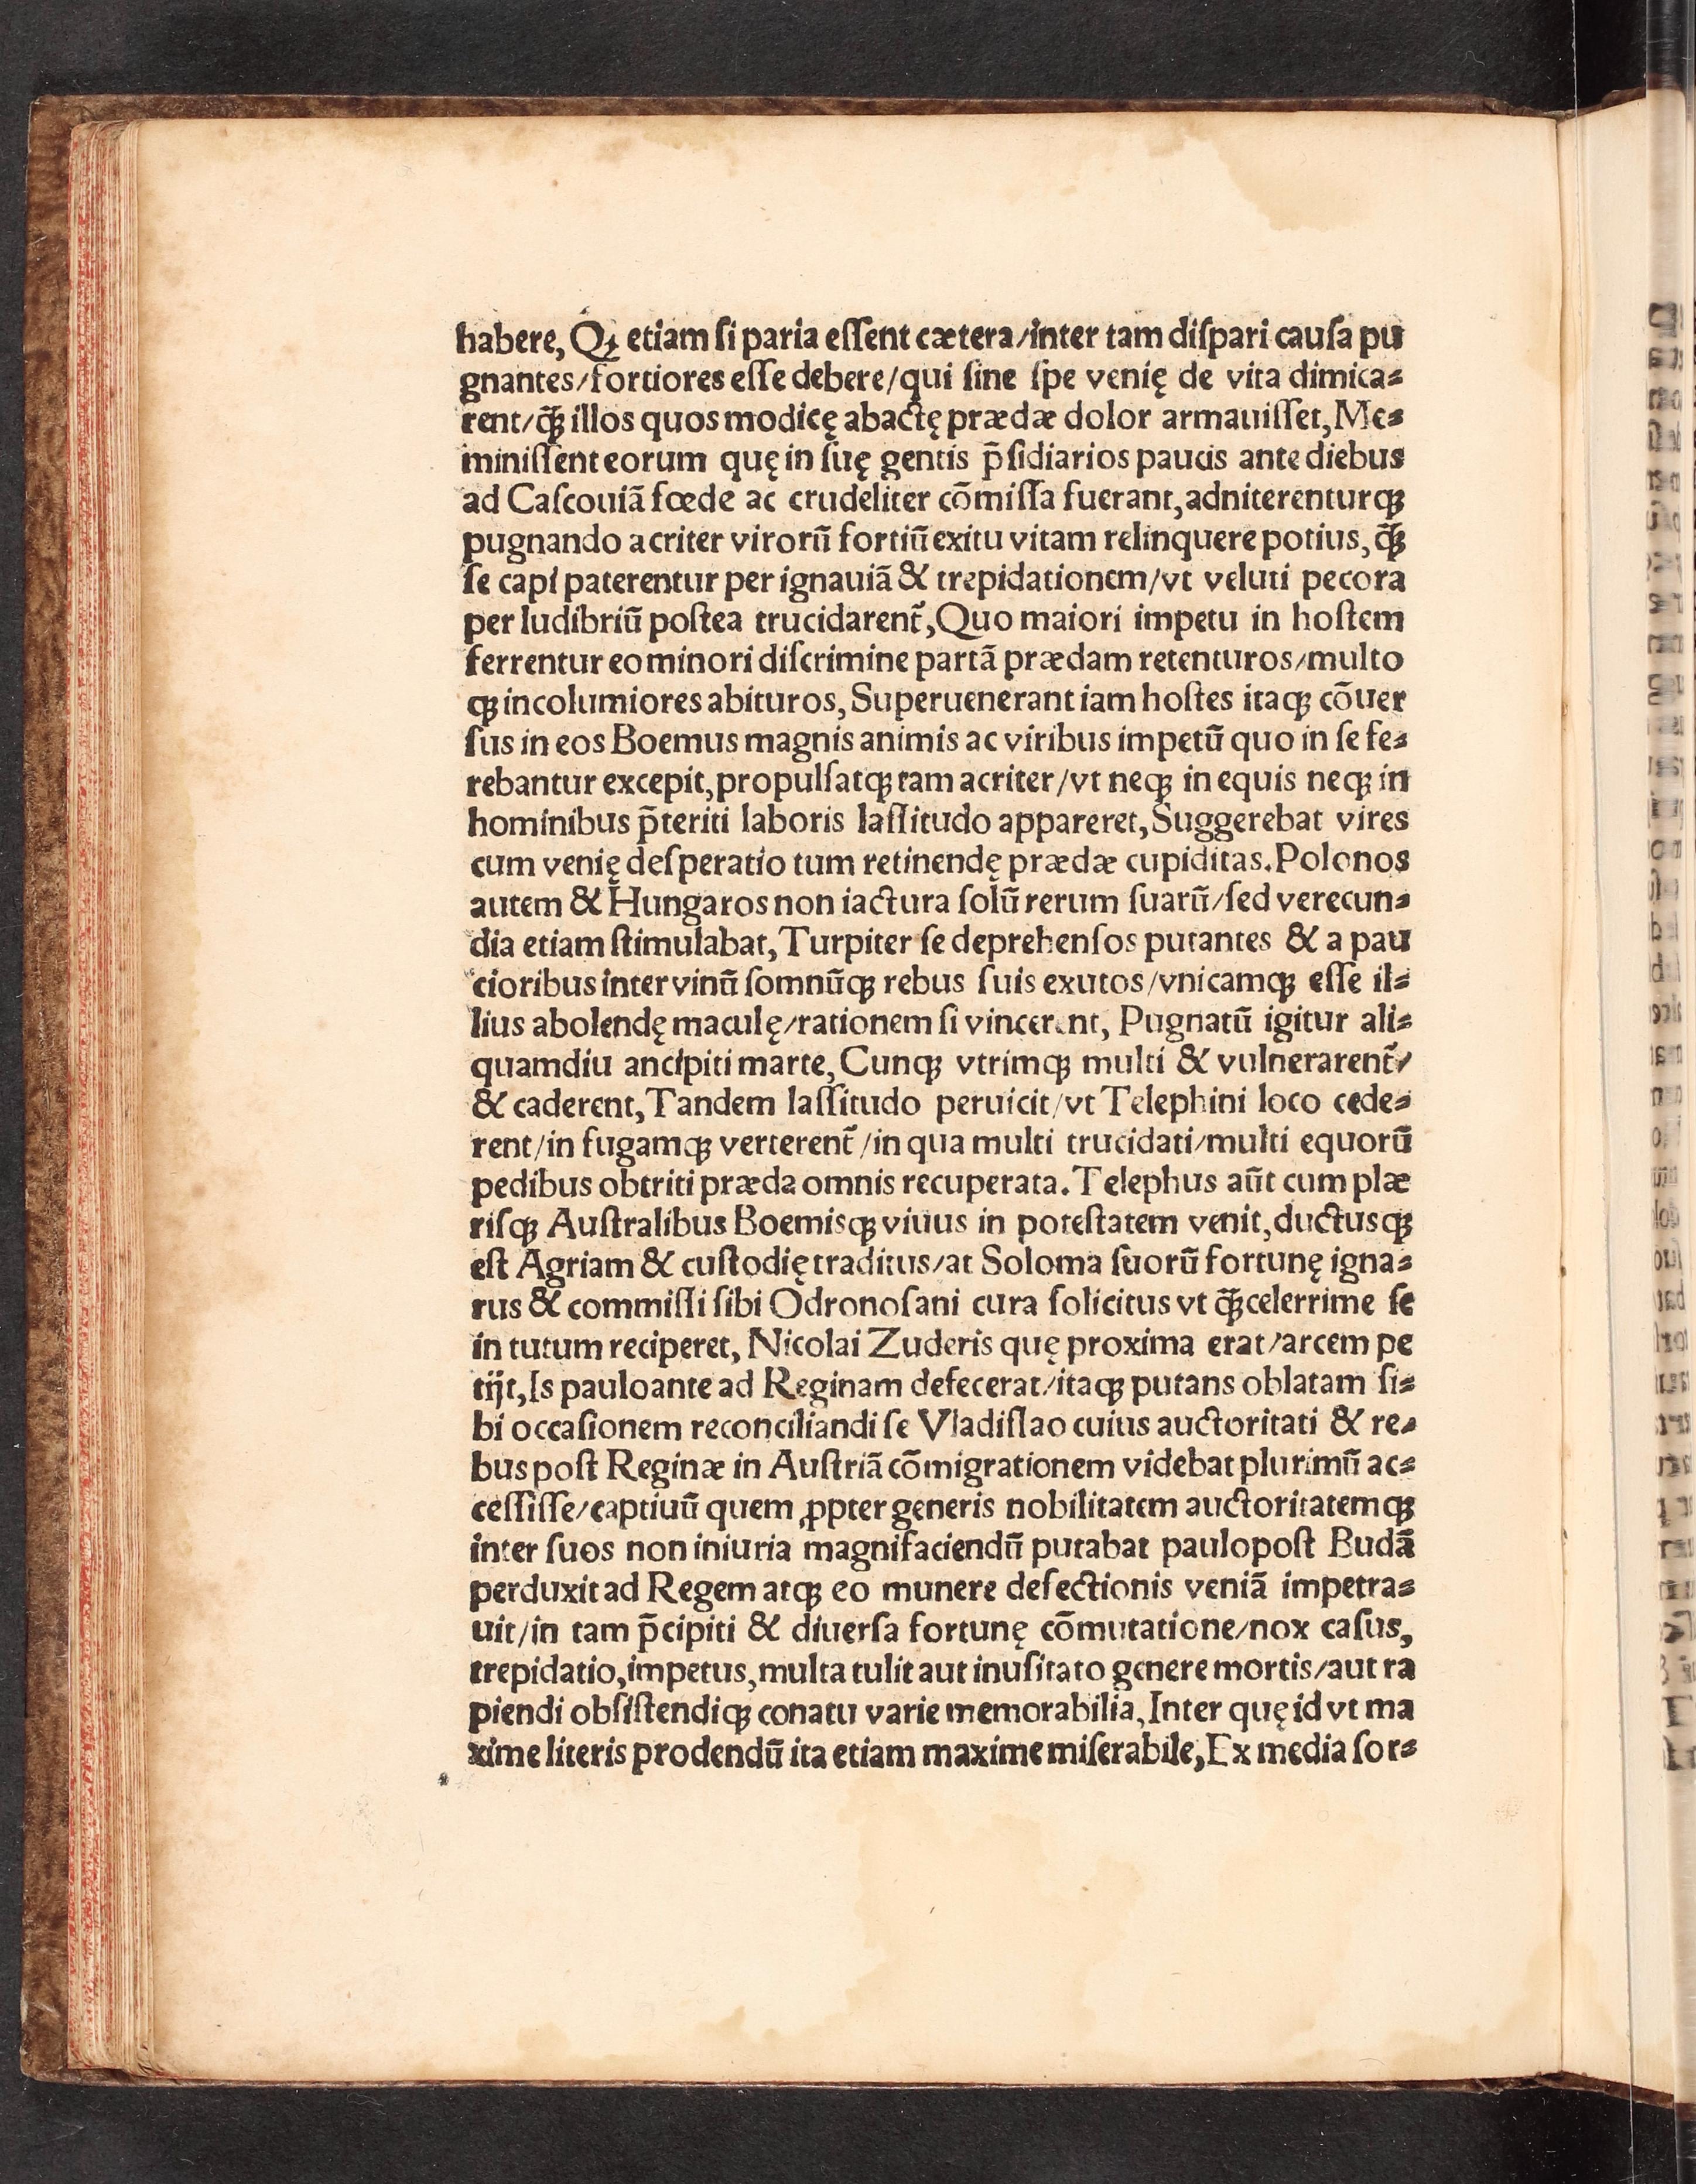 habere, Qꝫ etiam ſi paria eſſent cætera/inter tam diſpari cauſa pu
gnantes/fortiores eſſe debere/qui ſine ſpe venię de vita dimica⸗
rent/q̄ꝫ illos quos modicę abactę prædæ dolor armauiſſet, Me⸗
miniſſent eorum quę in ſuę gentis p̄ſidiarios paucis ante diebus
ad Caſcouiā fœde ac crudeliter cōmiſſa fuerant, adniterenturqꝫ
pugnando acriter virorū fortiū exitu vitam relinquere potius, q̄ꝫ
ſe capi paterentur per ignauiā & trepidationem/vt veluti pecora
per ludibriū poſtea trucidarent̃, Quo maiori impetu in hoſtem
ferrentur eo minori diſcrimine partā prædam retenturos/multo
qꝫ incolumiores abituros, Superuenerant iam hoſtes itaqꝫ cōuer
ſus in eos Boemus magnis animis ac viribus impetū quo in ſe fe⸗
rebantur excepit, propulſatqꝫ tam acriter/vt neqꝫ in equis neqꝫ in
hominibus p̄teriti laboris laſſitudo appareret, Suggerebat vires
cum venię deſperatio tum retinendę prædæ cupiditas. Polonos
autem & Hungaros non iactura ſolū rerum ſuarū/ſed verecun⸗
dia etiam ſtimulabat, Turpiter ſe deprehenſos putantes & a pau
cioribus inter vinū ſomnūqꝫ rebus ſuis exutos/vnicamqꝫ eſſe il⸗
lius abolendę maculę/rationem ſi vincerent, Pugnatū igitur ali⸗
quamdiu ancipiti marte, Cunqꝫ vtrimqꝫ multi & vulnerarent̃/
& caderent, Tandem laſſitudo peruicit/vt Telephini loco cede⸗
rent/in fugamqꝫ verterent̃/in qua multi trucidati/multi equorū
pedibus obtriti præda omnis recuperata. Telephus aūt cum plæ
riſqꝫ Auſtralibus Boemisqꝫ viuus in poteſtatem venit, ductusqꝫ
eſt Agriam & cuſtodię traditus/at Soloma ſuorū fortunę igna⸗
rus & commiſſi ſibi Odronoſani cura ſolicitus vt q̄ꝫ celerrime ſe
in tutum reciperet, Nicolai Zuderis quę proxima erat/arcem pe
tijt, Is pauloante ad Reginam defecerat/itaqꝫ putans oblatam ſi⸗
bi occaſionem reconciliandi ſe Vladiſlao cuius auctoritati & re⸗
bus poſt Reginæ in Auſtriā cōmigrationem videbat plurimū ac⸗
ceſſiſſe/captiuū quem ꝓpter generis nobilitatem auctoritatemqꝫ
inter ſuos non iniuria magnifaciendū putabat paulopoſt Budā
perduxit ad Regem atqꝫ eo munere defectionis veniā impetra⸗
uit/in tam p̄cipiti & diuerſa fortunę cōmutatione/nox caſus,
trepidatio, impetus, multa tulit aut inuſitato genere mortis/aut ra
piendi obſiſtendiqꝫ conatu varie memorabilia, Inter quę id vt ma
xime literis prodendū ita etiam maxime miſerabile, Ex media ſor⸗